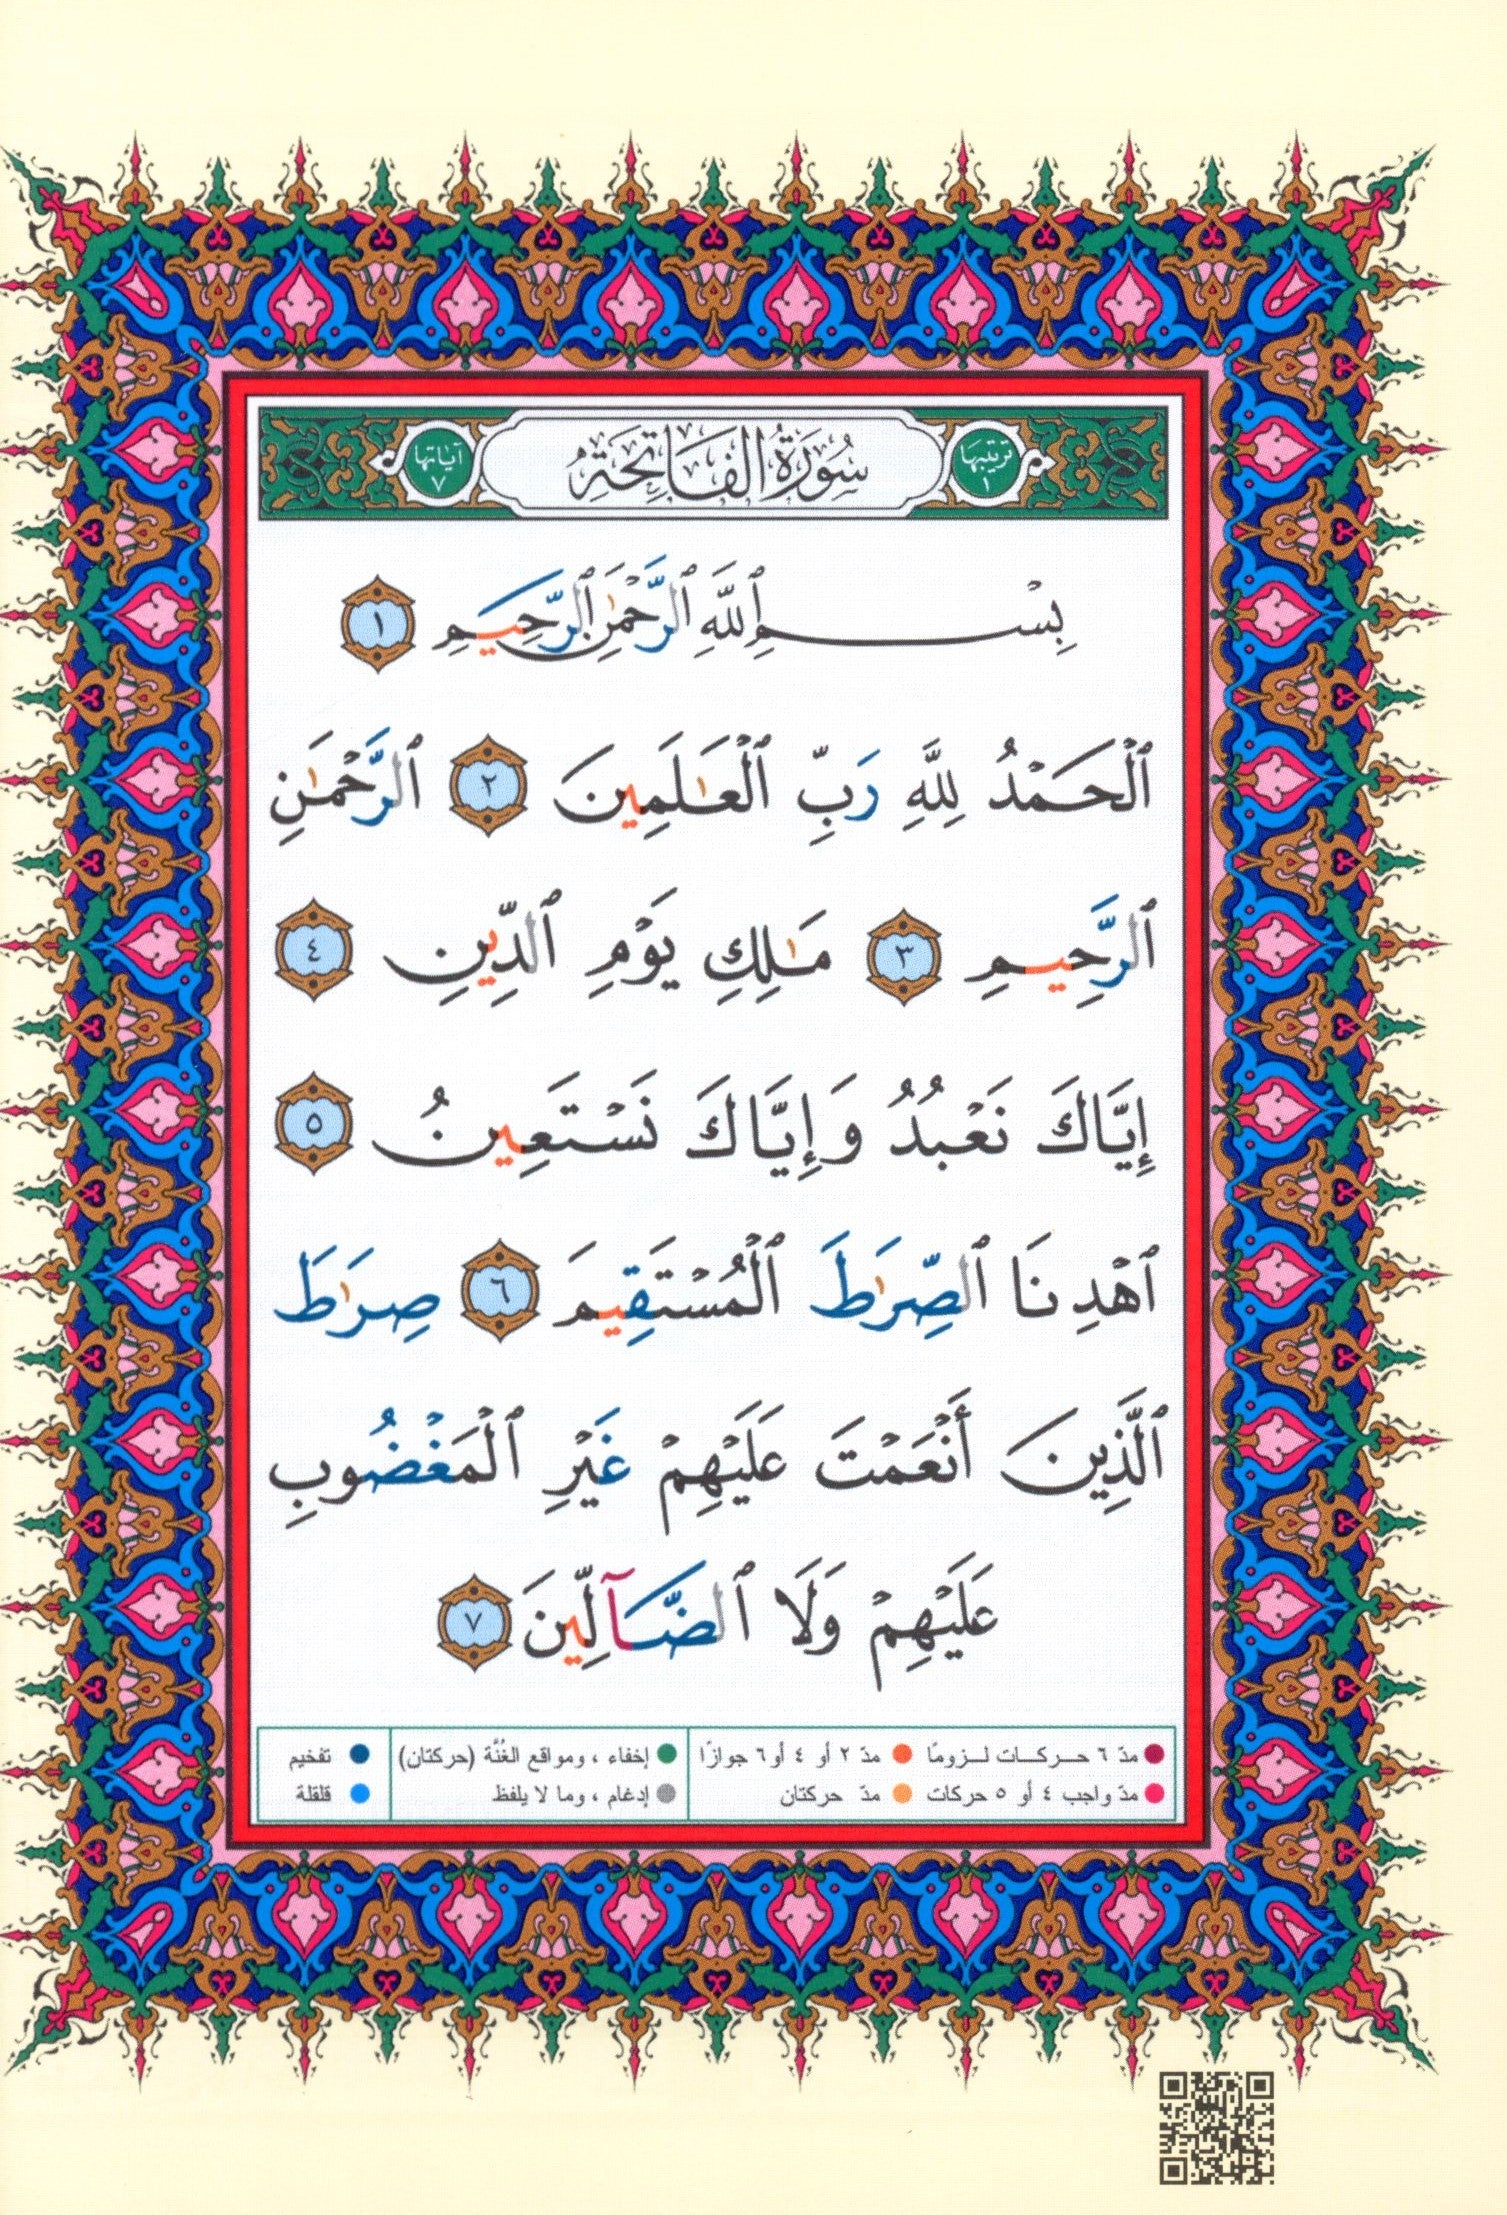 ترتيبها
١
سُورَةُ الْفَاتِحَةِ
آياتها
٧
بِسْمِ ٱللَّهِ ٱلرَّحْمَٰنِ ٱلرَّحِيمِ ١
ٱلْحَمْدُ لِلَّهِ رَبِّ ٱلْعَٰلَمِينَ ٢ ٱلرَّحْمَٰنِ
ٱلرَّحِيمِ ٣ مَٰلِكِ يَوْمِ ٱلدِّينِ ٤
إِيَّاكَ نَعْبُدُ وَإِيَّاكَ نَسْتَعِينُ ٥
ٱهْدِنَا ٱلصِّرَٰطَ ٱلْمُسْتَقِيمَ ٦ صِرَٰطَ
ٱلَّذِينَ أَنْعَمْتَ عَلَيْهِمْ غَيْرِ ٱلْمَغْضُوبِ
عَلَيْهِمْ وَلَا ٱلضَّآلِّينَ ٧
مدّ ٦ حركات لزومًا مدّ ٢ أو ٤ أو ٦ جوازًا إخفاء ، ومواقع الغُنَّة (حركتان) تفخيم
مدّ واجب ٤ أو ٥ حركات مدّ حركتان إدغام ، وما لا يلفظ قلقلة